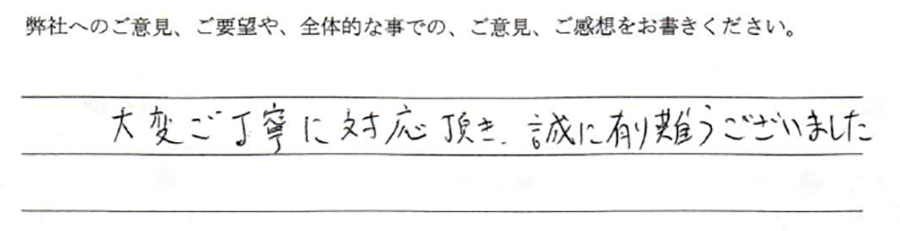 弊社へのご意見、ご要望や、全体的な事での、ご意見、ご感想をお書きください。
大変ご丁寧に対応頂き、誠に有り難うございました